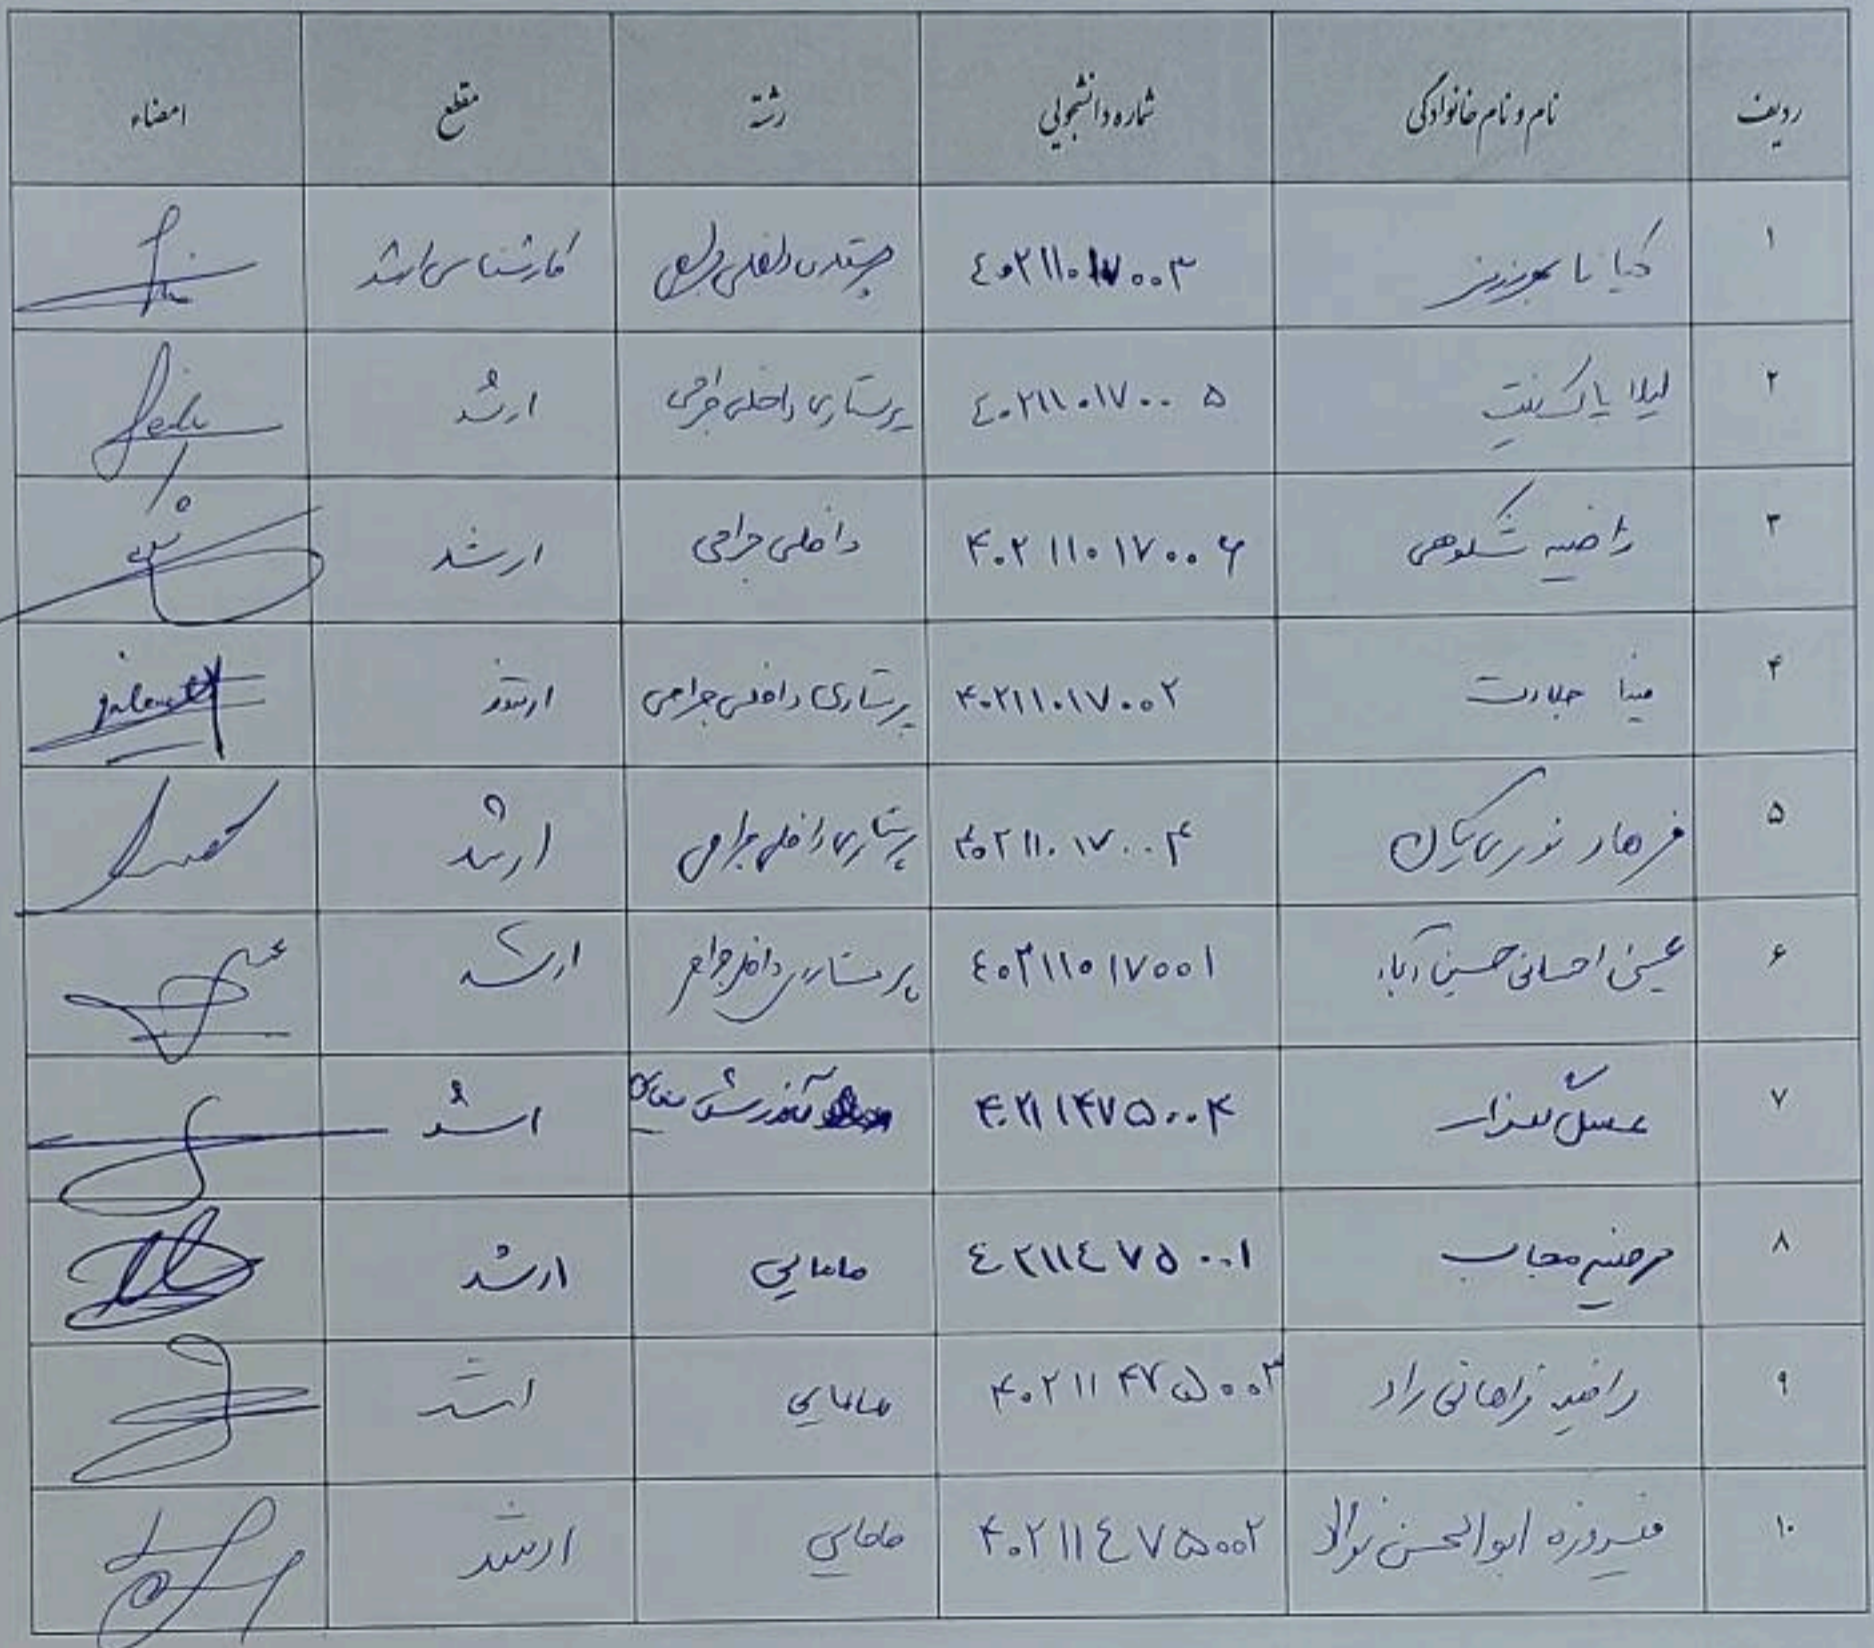 ردیف نام و نام خانوادگی شماره دانشجویی رشته مقطع امضاء
۱ کیانا ۴۰۲۱۱۰۱۷۰۰۳ پرستاری داخلی جراحی کارشناسی ارشد
۲ لیلا پاک نیت ۴۰۲۱۱۰۱۷۰۰۵ پرستاری داخلی جراحی ارشد
۳ راضیه شکوهی ۴۰۲۱۱۰۱۷۰۰۶ داخلی جراحی ارشد
۴ مینا جلادت ۴۰۲۱۱۰۱۷۰۰۲ پرستاری داخلی جراحی ارشد
۵ فرهاد نوری ۴۰۲۱۱۰۱۷۰۰۴ پرستاری داخلی جراحی ارشد
۶ احسانی حسین آباد ۴۰۲۱۱۰۱۷۰۰۱ پرستاری داخلی جراحی ارشد
۷ عسل ۴۰۲۱۱۴۷۵۰۰۴ ارشد
۸ مرضیه ۴۰۲۱۱۴۷۵۰۰۱ مامایی ارشد
۹ راضیه فراهانی راد ۴۰۲۱۱۴۷۵۰۰۳ مامایی ارشد
۱۰ فیروزه ابوالحسن ۴۰۲۱۱۴۷۵۰۰۲ مامایی ارشد